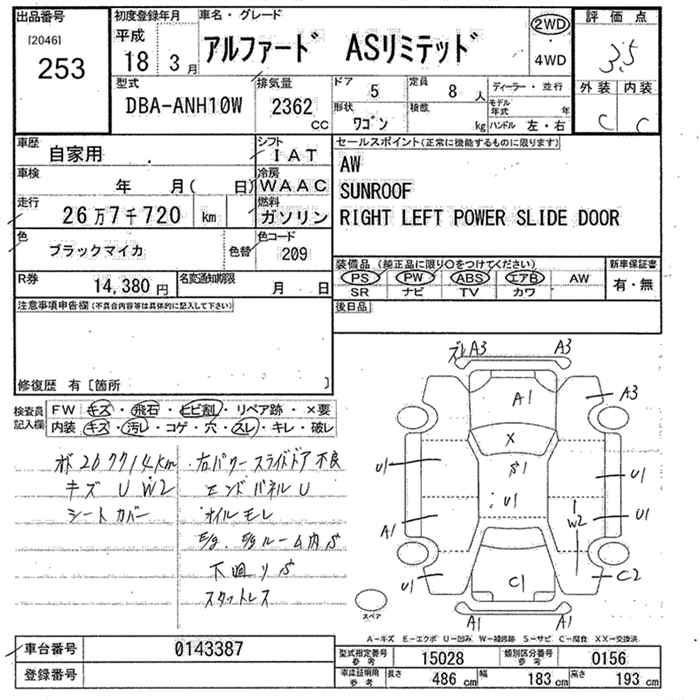 出品番号
[2046]
253
初度登録年月
平成
18 3月
車名・グレード
アルファード ASリミテッド
2WD
・
4WD
評価点
3.5
外装 内装
C C
型式
DBA-ANH10W
排気量
2362
CC
ドア
5
定員
8 人
形状
ワゴン
積数
kg
ディーラー・並行
モデル年式 年
ハンドル 左・右
車歴
自家用
シフト
IAT
車検
年 月( 日)
冷房
WAAC
走行
26万7千720 km
燃料
ガソリン
色
ブラックマイカ
色替
色コード
209
R券
14,380円
名変通知期限
月 日
セールスポイント(正常に機能するものに限ります)
AW
SUNROOF
RIGHT LEFT POWER SLIDE DOOR
装備品(純正品に限り○をつけてください)
PS PW ABS エアB AW
SR ナビ TV カワ
新車保証書
有・無
後日品
注意事項申告欄(不具合内容等は具体的に記入して下さい)
修復歴 有[箇所 ]
検査員記入欄
FW キズ・飛石・ヒビ割・リペア跡・×要
内装 キズ・汚レ・コゲ・穴・スレ・キレ・破レ
オド 267714km
キズ U W2
シートカバー
右パワースライドドア不良
エンドパネルU
オイルモレ
E/g. E/gルーム内S
下廻りS
スタットレス
ズレA3 A3
A1
A3
X
S1
U1
U1
U1
U1
A1
W2
U1
C1
C2
A1 A1
スペア
A-キズ E-エクボ U-凹み W-補修跡 S-サビ C-腐食 XX-交換済
車台番号
0143387
登録番号
型式指定番号
参考
15028
類別区分番号
参考
0156
車検証明用
参考
長さ
486 cm
幅
183 cm
高さ
193 cm